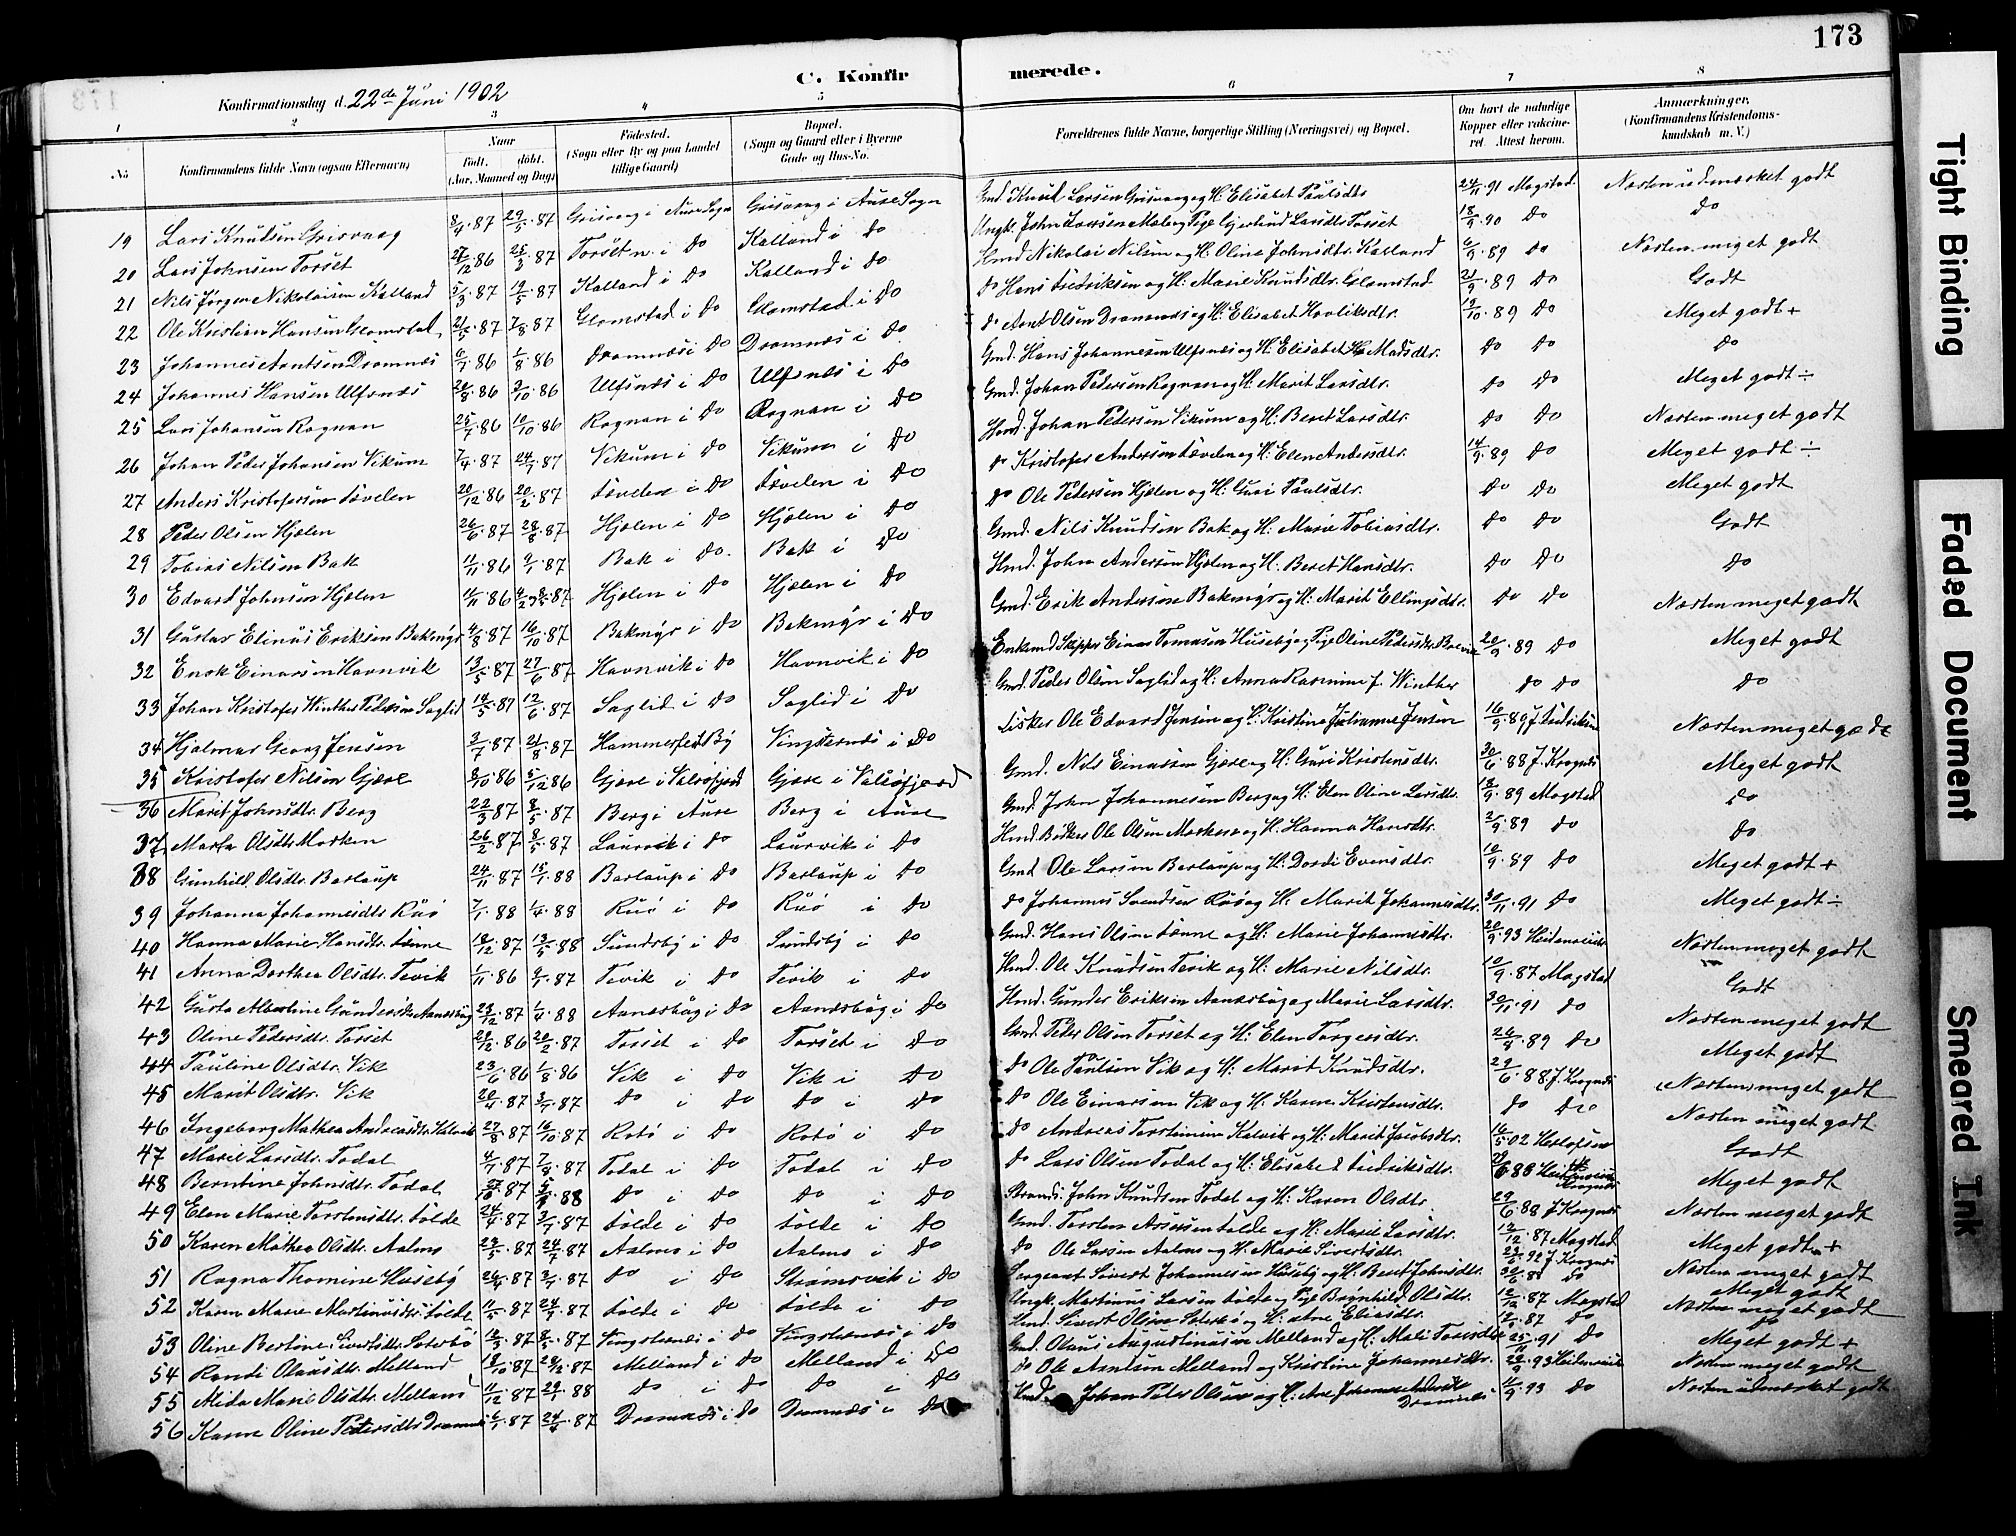 173
C. Konfirmerede.
Konfirmationsdag d. 22de Juni 1902
1 2 3 4 5 6 7 8
No
Konfirmandens fulde Navn (ogsaa Efternavn)
Naar
Födt. döbt.
(Aar, Maaned og Dag)
Födested.
(Sogn eller By og paa Landet tillige Gaard)
Bopæl.
(Sogn og Gaard eller i Byerne Gade og Hus-No.
Forældrenes fulde Navne, borgerlige Stilling (Næringsvei) og Bopæl.
Om havt de naturlige Kopper eller vakcineret. Attest herom.
Anmærkninger.
(Konfirmandens Kristendomskundskab m. V.)
19 Lars Knudsen Grisvaag 8/4 87 29/5 87 Grisvaag i Aure Sogn Grisvaag i Aure Sogn Gmd. Knud Larsen Grisvaag og H. Elisabet Paulsdtr 24/11 91 Magstad Næsten udmærket godt
20 Lars Johnsen Torset 27/12 86 25/3 87 Torset n. i do Kalland i do Ungk. John Larsen Maløen Pige Gjertrud Larsdtr Torset 18/9 90 do do
21 Nils Jørgen Nikolaisen Kalland 5/3 87 19/5 87 Kalland i do Kalland i do Hmd Nikolai Nilsen og H. Oline Johnsdtr. Kalland 6/9 89 do Næsten meget godt
22 Ole Kristian Hansen Glomstad 21/5 87 7/8 87 Glomstad i do Glomstad i do do Hans Fredriksen og H. Marie Knudsdtr. Glomstad 21/9 89 do Godt
23 Johannes Arntsen Dromnes 6/7 86 1/8 86 Dromnæs i do Dromnæs i do do Arnt Olsen Dromnæs og H. Elisabet Havliksdtr. 19/10 89 do Meget godt +
24 Johannes Hansen Ulfsnæs 20/8 86 3/10 86 Ulfsnæs i do Ulfsnæs i do Gmd. Hans Johannesen Ulfsnæs og H. Elisabet Madsdtr. do do do
25 Lars Johansen Rognan 25/7 86 10/10 86 Rognan i do Rognan i do Gmd. Johan Pedersen Rognan og H. Marit Larsdtr. do do Meget godt ÷
26 Johan Peder Johansen Vikum 7/4 87 24/7 87 Vikum i do Vikum i do Hmd. Johan Pedersen Vikum og H. Beret Larsdtr. do do Næsten meget godt
27 Anders Kristofersen Løvelen 20/12 86 20/2 87 Løvelen i do Løvelen i do do Kristofer Andersen Løvelen og H. Elen Andersdtr. 14/9 89 do Meget godt ÷
28 Peder Olsen Hjelen 26/6 87 28/8 87 Hjelen i do Hjelen i do do Ole Pedersen Hjelen og H. Guri Paulsdtr. do do Meget godt
29 Tobias Nilsen Bak 11/11 86 9/1 87 Bak i do. Bak i do Gmd. Nils Knudsen Bak og H. Marie Tobiasdtr. do do Godt
30 Edvard Johnsen Hjelen 11/11 86 87 Hjelen i do Hjelen i do Hmd. John Andersen Hjelen og H. Beret Hansdtr. do do do
31 Gustav Elinus Eriksen Bakmyr 4/8 87 16/10 87 Bakmyr i do Bakmyr i do Gmd. Erik Andersen Bakmyr og H. Marit Ellingsdtr. do do Næsten meget godt
32 Enok Einarsen Havnvik 13/5 87 27/6 87 Havnvik i do Havnvik i do Enkemd Skipper Einar Tomasen Husby og Pige Oline Pedersdtr. 20/9 89 do Meget godt
33 Johan Kristofer Winther Pedersen Saglid 14/5 87 12/6 87 Saglid i do Saglid i do Gmd. Peder Olsen Saglid og H. Anna Rasmine f. Winther do do do
34 Hjalmar Georg Jensen 3/7 87 21/8 87 Hammerfest By Vingsternæs i do Fisker Ole Edvard Jensen og H. Kristine Julianne Jensen 16/9 89 J. Fredriksen Næsten meget godt
35 Kristofer Nilsen Gjære 8/10 86 5/12 86 Gjære i Valsøfjord Gjære i Valsøfjord Gmd. Nils Einarsen Gjære og H. Guri Kristensdtr. 30/6 88 J. Krognes Meget godt
36 Marit Johnsdtr. Berg 22/3 87 8/5 87 Berg i Aure Berg i Aure Gmd. John Johannesen Berg og H. Elen Oline Larsdtr. 18/9 89 Magstad do
37 Marta Olsdtr. Morken 26/2 87 8/5 87 Laurvik i do Laurvik i do Hmd. Ole Olsen Morken og H. Hanna Hansdtr. 2/9 89 do do
38 Gunhild Olsdtr. Barlaup 24/11 87 15/1 88 Barlaup i do Barlaup i do Gmd Ole Larsen Barlaup og H. Dordi Evensdtr. 10/9 89 do Meget godt +
39 Johanna Johannesdtr. Ruø 7/1 88 1/4 88 Ruø i do Ruø i do do Johannes Svendsen Ruø og H. Marit Johannesdtr. 30/11 91 do Meget godt ÷
40 Hanna Marie Hansdtr. Lønne 18/12 87 13/5 88 Sundsby i do Sundsby i do Gmd. Hans Olsen Lønne og H. Marie Johannesdtr. 20/9 93 Næsten meget godt
41 Anna Dorthea Olsdtr. Tevik 1/11 86 9/1 87 Tevik i do Tevik i do Hmd. Ole Knudsen Tevik og H. Marie Nilsdtr. 10/9 87 Magstad Godt
42 Gusta Albertine Gundersdtr. Aanesbug 23/12 87 1/4 88 Aanesbug i do Aanesbug i do Hmd. Gunder Eriksen Aanesbug og Marie Larsdtr. 30/11 91 do Næsten meget godt
43 Oline Pedersdtr. Torset 28/12 86 20/2 87 Torset i do Torset i do Gmd. Peder Olsen Torset og H. Elen Torgersdtr. 26/8 89 do Meget godt
44 Pauline Olsdtr. Vik 23/6 86 1/8 86 Vik i do Vik i do do Ole Paulsen Vik og H. Marit Knudsdtr. 29/6 88 J. Krognes Næsten meget godt
45 Marit Olsdtr. Vik 20/4 87 3/7 87 do i do do i do do Ole Einarsen Vik og H. Karen Kristensdtr. do do Næsten meget godt
46 Ingeborg Mathea Andreasdtr. Kalvik 27/8 87 16/10 87 Rotø i do Rotø i do do Andreas Torstensen Kalvik og H. Marit Jacobsdtr. 16/5 02 Herlofsen Godt
47 Marie Larsdtr. Todal 4/7 87 7/8 87 Todal i do Todal i do do Lars Olsen Todal og H. Elisabet Fredriksdtr. 88 Meget godt
48 Berntine Johnsdtr. Todal 27/10 87 88 do i do do i do Strands. John Knudsen Todal og H. Karen Olsdtr. 29/6 88 J. Krognes Næsten meget godt
49 Elen Marie Torstensdtr. Lølde 24/4 87 3/7 87 Lølde i do Lølde i do Gmd. Torsten Assersen Lølde og H. Marie Larsdtr. 12/12 87 Magstad Meget godt +
50 Karen Mathea Olsdtr. Aalmo 23/5 87 24/7 87 Aalmo i do Aalmo i do do Ole Larsen Aalmo og H. Marie Sivertsdtr. 92 J. Krognes Næsten meget godt
51 Ragna Thomine Husby 26/4 87 3/7 87 do i do Strømsvik i do Sergeant Sivert Johannesen Husby og H. Beret Johnsdtr. 30/6 88 do Meget godt
52 Karen Marie Martinusdtr. Lølde 11/5 87 24/7 87 Lølde i do Lølde i do Ungk. Martinus Larsen Lølde og Pige Brynhild Olsdtr. 12/12 87 Magstad Næsten meget godt
53 Oline Bertine Sivertsdtr. 87 87 Vingsternæs i do Vingsternæs i do Hmd. Sivert Olsen og H. Ane Eliasdtr. 87 do do
54 Randi Olausdtr. Melland 18/10 87 87 Melland i do Melland i do Gmd. Olaus Augustinusen Melland og H. Mali Toresdtr 25/11 91 do Meget godt +
55 Mida Marie Olsdtr. Melland 11/12 87 29/1 88 do i do do i do do Ole Arntsen Melland og Kristine Johannesdtr. 29/9 93 Næsten meget godt
56 Karen Oline Pedersdtr Dromnes 6/1 87 24/4 87 Dromnæs i do Dromnæs i do Hmd. Johan Peder Olsen og H. Ane Johanna Andersdtr Dromnæs 11/9 93 do Næsten udmærket godt
Tight Binding
Faded Document
Smeared Ink